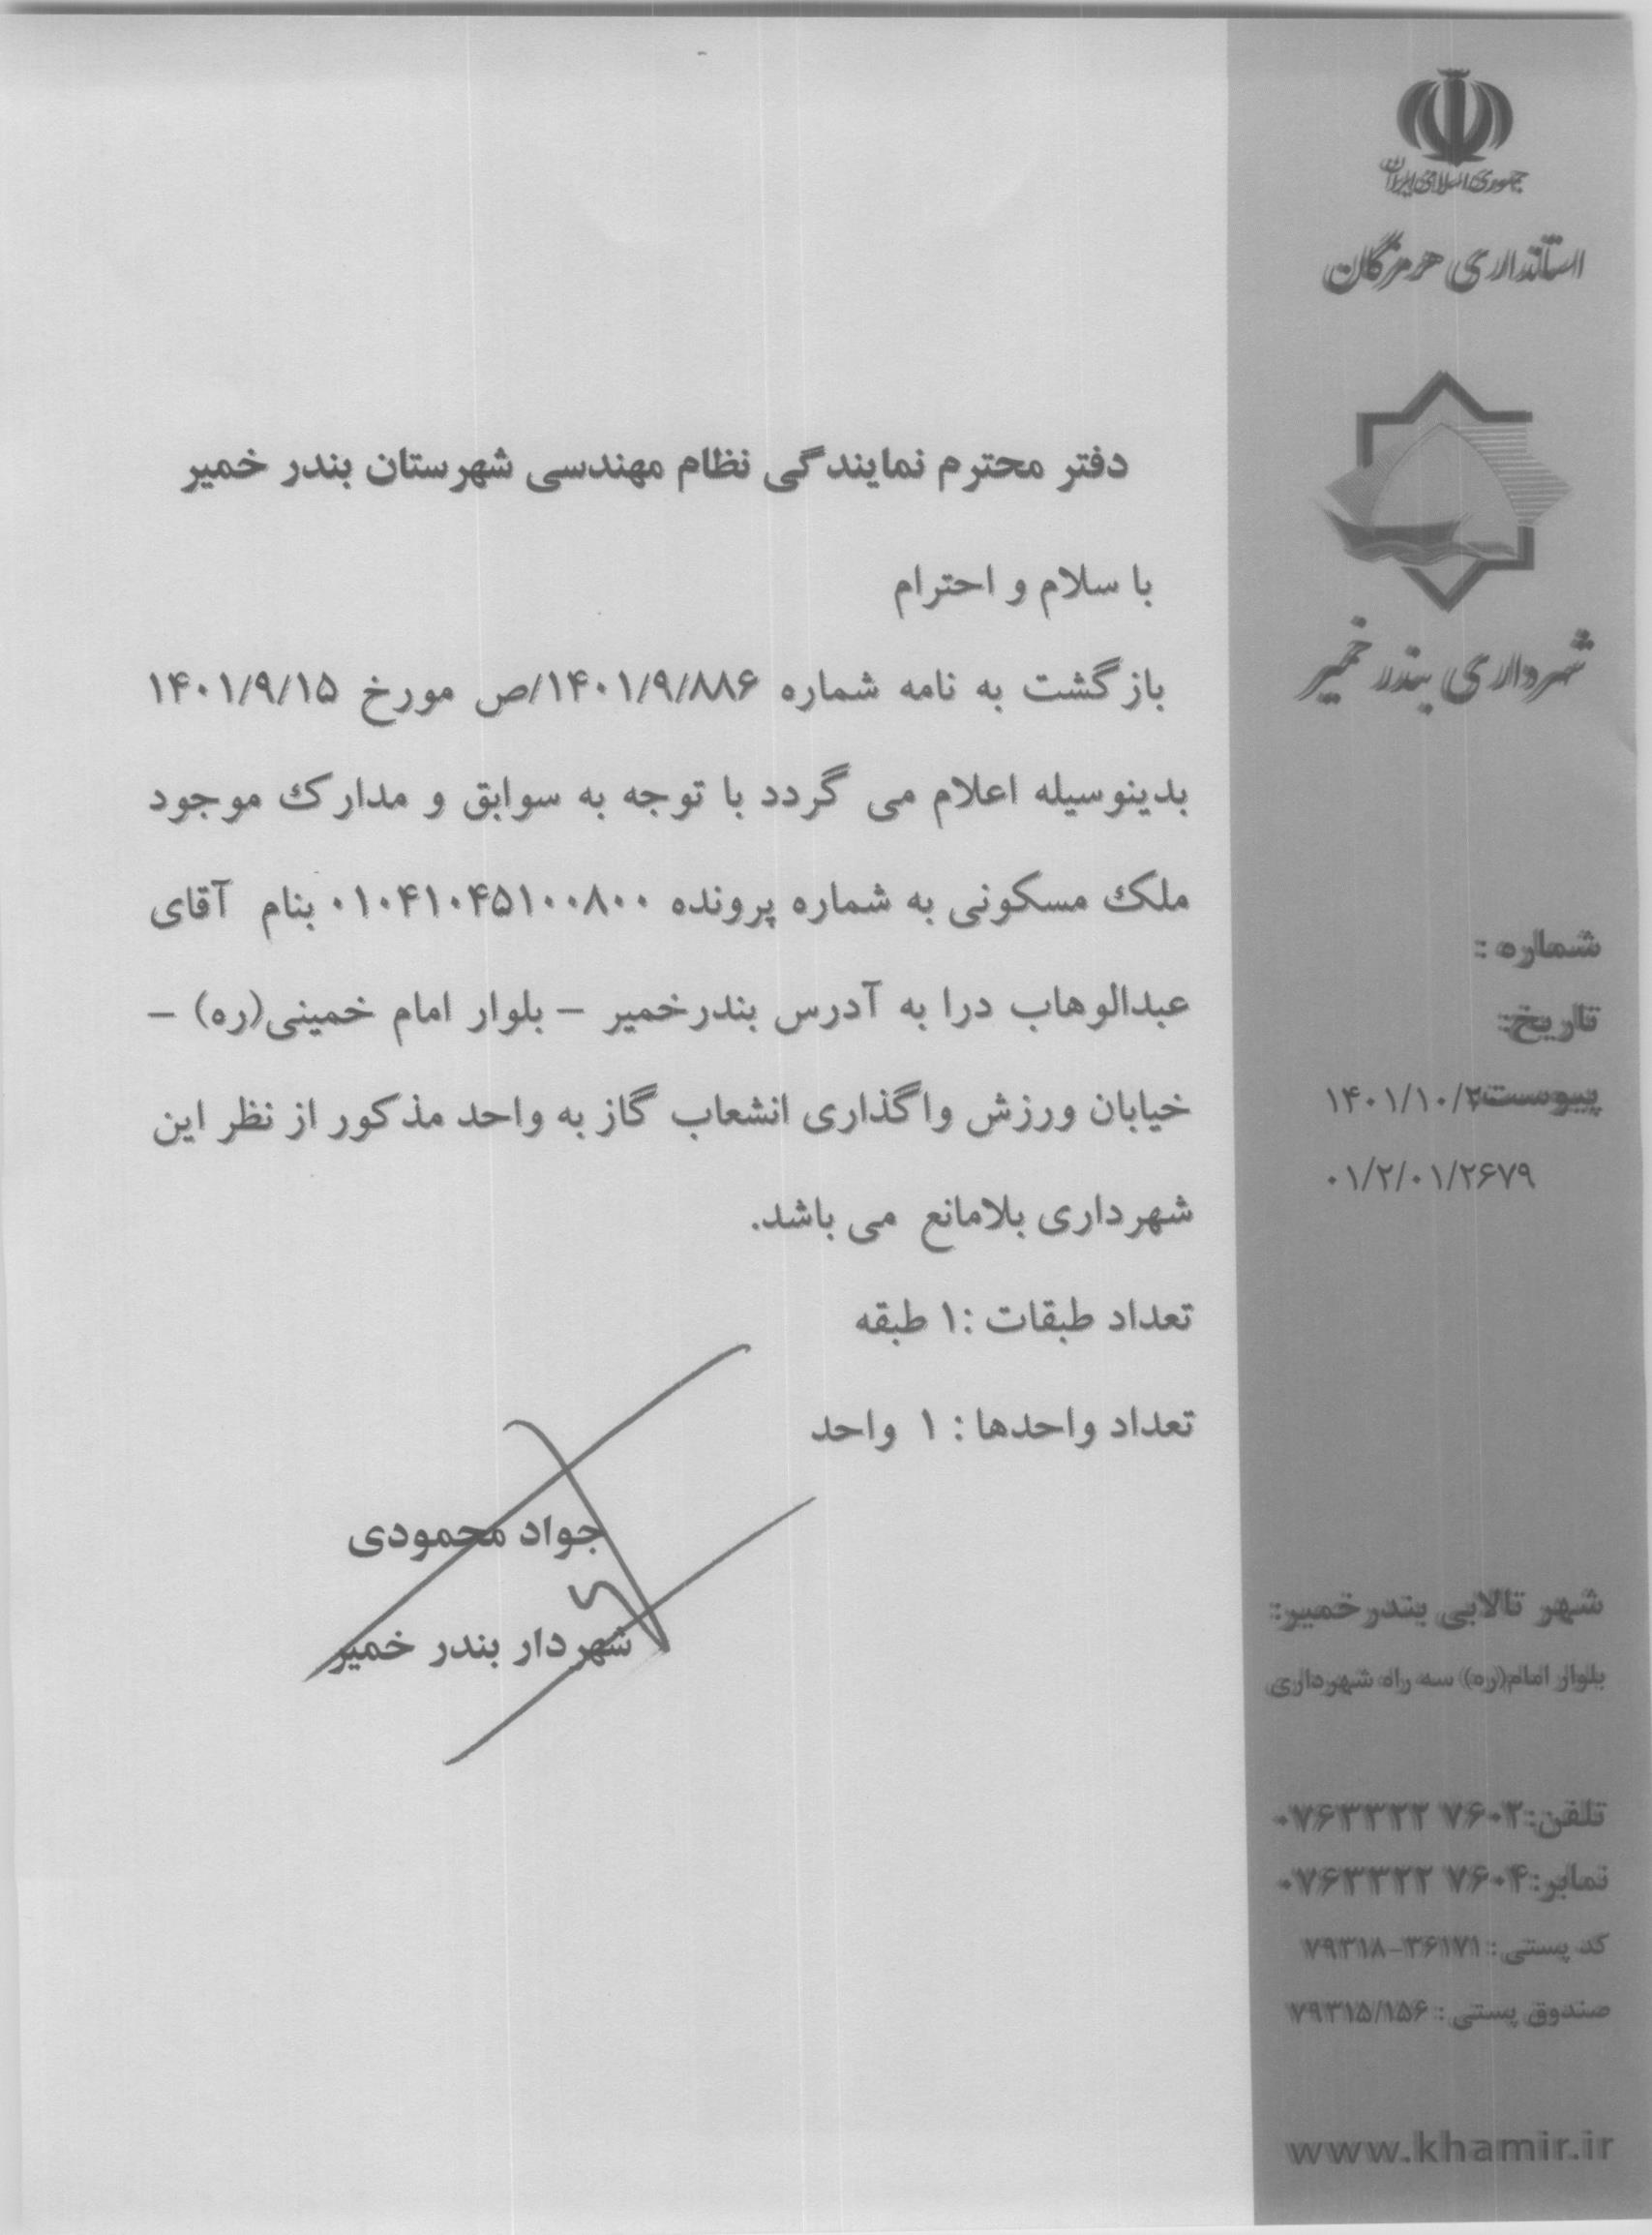 جمهوری اسلامی ایران
استانداری هرمزگان
شهرداری بندر خمیر
دفتر محترم نمایندگی نظام مهندسی شهرستان بندر خمیر
با سلام و احترام
بازگشت به نامه شماره ۱۴۰۱/۹/۸۸۶/ص مورخ ۱۴۰۱/۹/۱۵
بدینوسیله اعلام می گردد با توجه به سوابق و مدارک موجود
ملک مسکونی به شماره پرونده ۰۱۰۴۱۰۴۵۱۰۰۸۰۰ بنام آقای
عبدالوهاب درا به آدرس بندرخمیر – بلوار امام خمینی(ره) –
خیابان ورزش واگذاری انشعاب گاز به واحد مذکور از نظر این
شهرداری بلامانع می باشد.
تعداد طبقات :۱ طبقه
تعداد واحدها : ۱ واحد
جواد محمودی
شهردار بندر خمیر
شماره :
تاریخ:
پیوست: ۱۴۰۱/۱۰/۲
۰۱/۲/۰۱/۲۶۷۹
شهر تالابی بندرخمیر:
بلوار امام(ره) سه راه شهرداری
تلفن: ۰۷۶۳۳۲۲ ۷۶۰۲
نمابر: ۰۷۶۳۳۲۲ ۷۶۰۴
کد پستی : ۷۹۳۱۸-۳۶۱۷۱
صندوق پستی : ۷۹۳۱۵/۱۵۶
www.khamir.ir